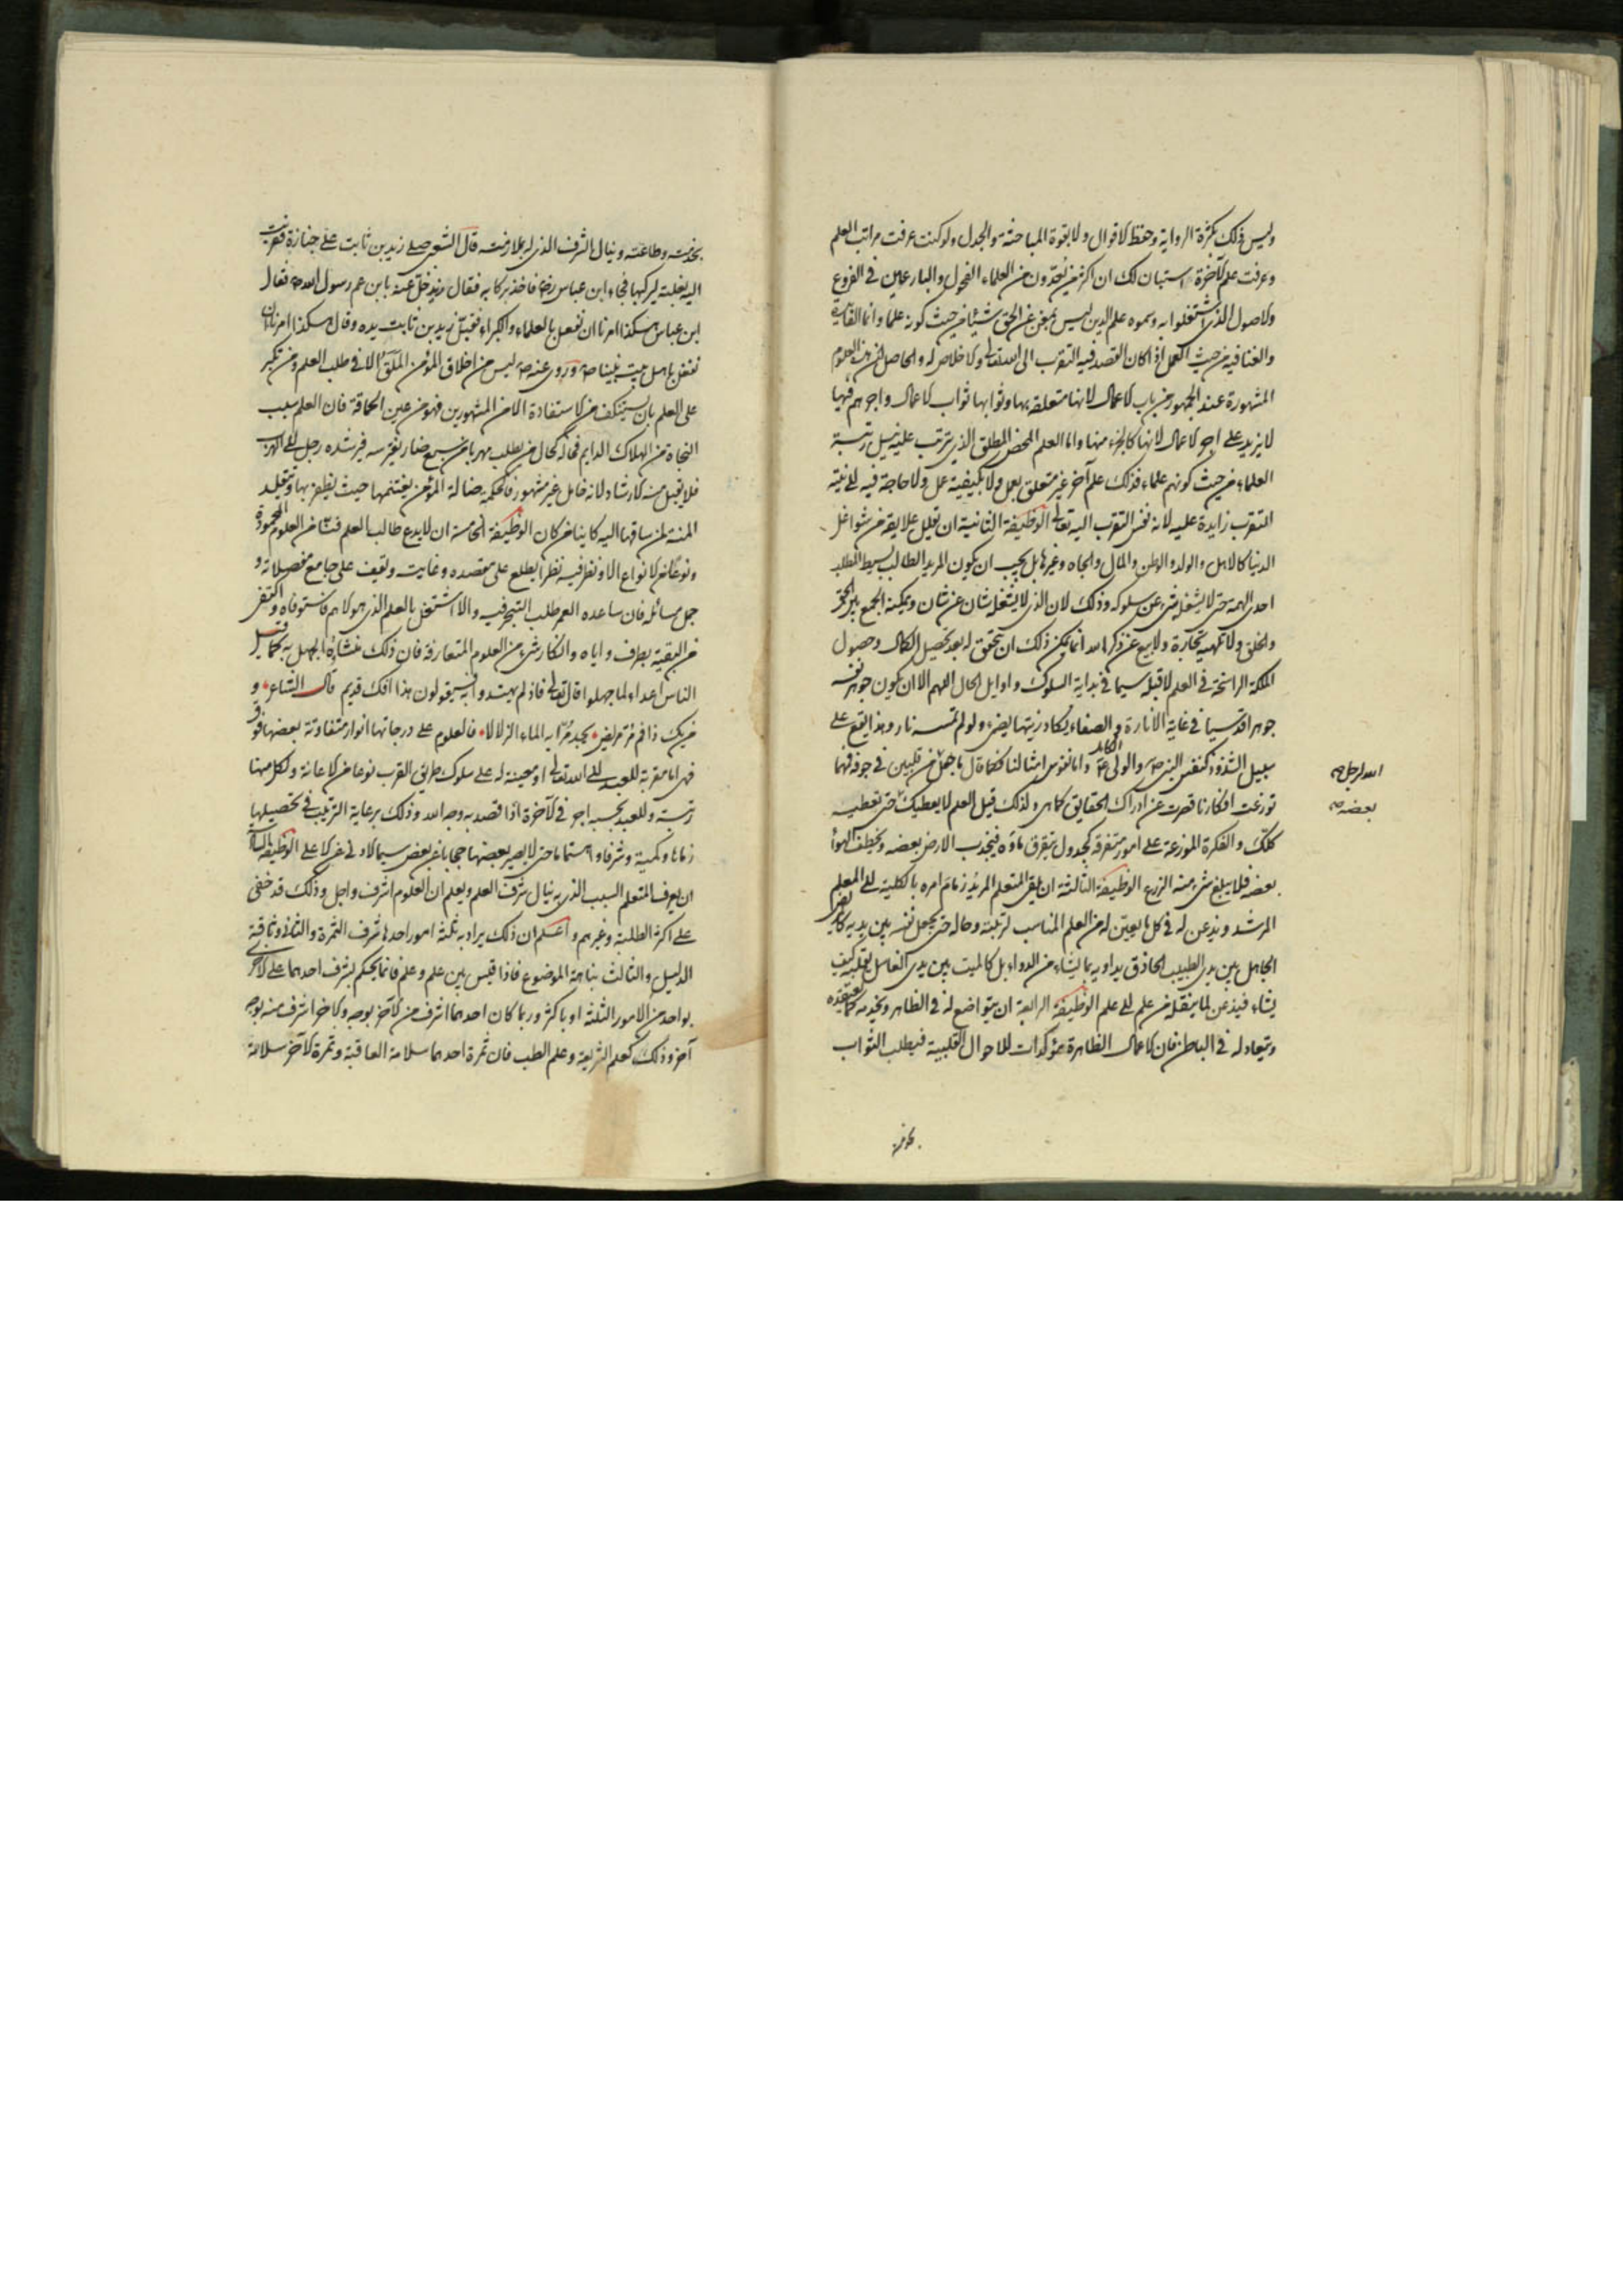 وليس ذلك بكثرة الرواية وحفظ الاقوال ولا بقوة المباحثة والجدل ولو كنت عرفت مراتب العلم
وعرفت علم الآخرة استبان لك ان اكثر من يُعدّون من العلماء الفحول والبارعين في الفروع
والاصول الذي اشتغلوا به وسموه علم الدين ليس يغني عن الحق شيئا من حيث كونه علما وانما الفايدة
والغنا فيه من حيث العمل اذا كان القصد فيه التقرب الى الله تعالى والاخلاص له والحاصل ان هذه العلوم
المشهورة عند الجمهور من باب الاعمال لانها متعلقة بها وثوابها ثواب الاعمال واجرهم فيها
لا يزيد على اجر الاعمال لانها كالجزء منها واما العلم المحض المطلق الذي يترتب عليه نيل رتبة
العلماء من حيث كونهم علماء فذلك علم آخر غير متعلق بعمل ولا بكيفية عمل ولا حاجة فيه الى نية
التقرب زايدة عليه لانه نفس التقرب اليه تعالى الوظيفة الثانية ان تقلل علايقه من شواغل
الدنيا كالاهل والولد والوطن والمال والجاه وغيرها بل يجب ان يكون المريد الطالب بسيط الطلب
احدى الهمة حتى لا يشغله شيء عن سلوكه وذلك لان الذي لا يشغله شان عن شان ويمكنه الجمع بين الحق
والخلق ولا تلهيه تجارة ولا بيع عن ذكر الله انما يمكن ذلك ان تحقق له بعد تحصيل الكمال وحصول
الملكة الراسخة في العلم لا قبله سيما في بداية السلوك واوايل الحال اللهم الا ان يكون جوهر نفسه
جوهرا قدسيا في غاية الانارة والصفاء يكاد زيتها يضيء ولو لم تمسسه نار وهذا يقع على
سبيل الشذوذ كنفس النبي ص والولي ع واما نفوس امثالنا فكما قال ما جعل من قلبين في جوفه فمهما
الله لرجل ص
توزعت افكارنا قصرت عن ادراك الحقايق كما هي ولذلك قيل العلم لا يعطيك حتى تعطيه
بعضه ص
كلك والفكرة الموزعة على امور متفرقة كجدول تتفرق ماؤه فيجذب الارض بعضه ويخطف الهوا
بعضه فلا يبلغ شيء منه الزرع الوظيفة الثالثة ان يلقي المتعلم المريد زمام امره بالكلية الى المعلم
المرشد ويذعن له في كل ما يعين له من العلم المناسب لرتبته وحاله حتى يجعل نفسه بين يديه كالمريض
الجاهل بين يدي الطبيب الحاذق يداويه بما يشاء من الدواء بل كالميت بين يدي الغاسل يقلبه كيف
يشاء فيذعن لما ينقله من علم الى علم الوظيفة الرابعة ان يتواضع له في الظاهر ويخدمه كما يعتقده
ويتعاد له في الباطن فان الاعمال الظاهرة مؤكدات للاحوال القلبية فيطلب الثواب
بخدمته
بخدمته وطاعته وينال الشرف الذي له بملازمته قال الشعبي صلى زيد بن ثابت على جنازة فقربت
اليه بغلته ليركبها فجاء ابن عباس رض فاخذ بركابه فقال زيد خل عنه يا بن عم رسول الله ص فقال
ابن عباس هكذا امرنا ان نفعل بالعلماء والكبراء فقبل زيد بن ثابت يده وقال هكذا امرنا ان
نفعل باهل بيت نبينا ص وروى عنه ص ليس من اخلاق المؤمن الملق الا في طلب العلم ومن تكبر
على العلم بان يستنكف من الاستفادة الا من المشهورين فهو من عين الحماقة فان العلم سبب
النجاة من الهلاك الدايم فحاله كحال من يطلب مهربا من سبع ضار يفترسه فيرشده رجل الى المهرب
فلا يقبل منه الارشاد لانه خامل غير مشهور فالحكمة ضالة المؤمن يغتنمها حيث يظفر بها ويتقلد
المنة لمن ساقها اليه كاينا من كان الوظيفة الخامسة ان لا يدع طالب العلم فنّا من العلوم المحمودة
ونوعًا من الانواع الا ونظر فيه نظرا يطلع على مقصده وغايته ويقف على جامع مفصلاته و
جمل مسائله فان ساعده العمر طلب التبحر فيه والا اشتغل بالعلم الذي هو الاهم فاستوفاه واكتفى
من البقية بطرف واياه وانكار شيء من العلوم المتعارفة فان ذلك منشاؤه الجهل به كما قيل
الناس اعداء لما جهلوا قال تعالى فاذ لم يهتدوا به فسيقولون هذا افك قديم قال الشاعر و
من يك ذا فم مُرّ مريض يجد مُرّا به الماء الزلالا فالعلوم على درجاتها انوار متفاوتة بعضها فوق
فهي اما مقربة للعبد الى الله تعالى او معينة له على سلوك طريق القرب نوعا من الاعانة ولكل منها
رتبة وللعبد بحسبه اجر في الآخرة اذا قصد به وجه الله وذلك برعاية الترتيب في تحصيلها
زمانا وكمية وشرفا واهتماما حتى لا يصير بعضها حجابا عن بعض سيما الادنى عن الاعلى الوظيفة السادسة
ان يعرف المتعلم السبب الذي به ينال شرف العلم ويعلم ان العلوم اشرف واجل وذلك قد خفى
على اكثر الطلبة وغيرهم واعلم ان ذلك يراد به ثلثة امور احدها شرف الثمرة والثاني وثاقة
الدليل والثالث نباهة الموضوع فاذا قيس بين علم وعلم فانما يحكم بشرف احدهما على الآخر
بواحد من الامور الثلثة او باكثر وربما كان احدهما اشرف من الآخر بوجه والآخر اشرف منه بوجه
آخر وذلك كعلم الشريعة وعلم الطب فان ثمرة احدهما سلامة العاقبة وثمرة الآخر سلامة